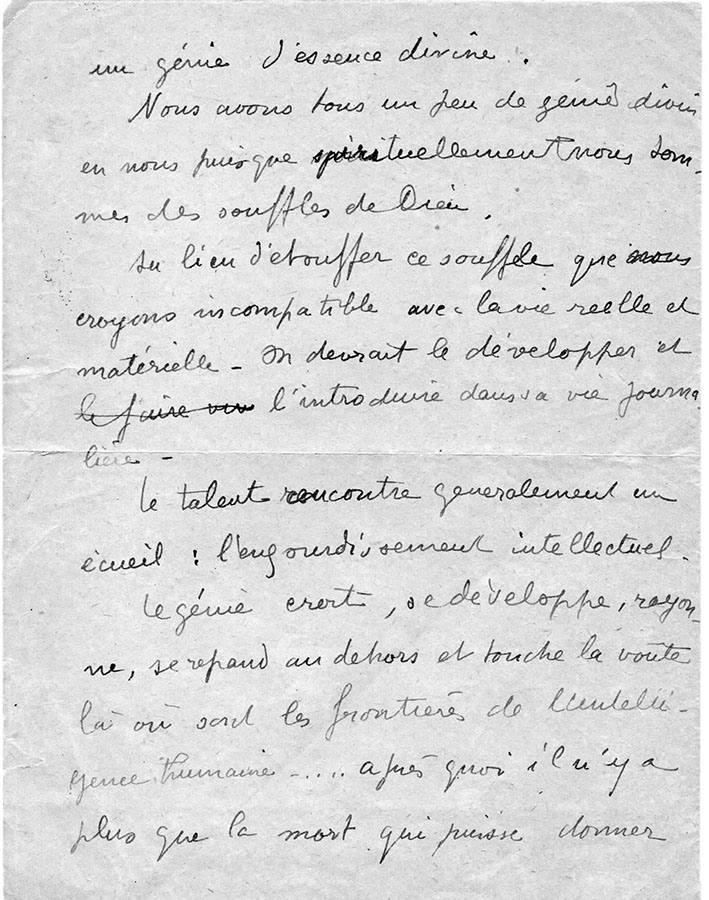 un génie d'essence divine.
Nous avons tous un peu de génie divin
en nous puisque spirituellement nous som-
mes des souffles de Dieu.
Au lieu d'étouffer ce souffle que nous
croyons incompatible avec la vie reelle et
matérielle - On devrait le développer et
le faire l'introduire dans sa vie journa
lière -
Le talent rencontre generalement un
écueil : l'engourdissement intellectuel.
Le génie croît, se développe, rayon-
ne, se repand au dehors et touche la voûte
là où sont les frontières de l'intelli-
gence humaine - .... après quoi il n'y a
plus que la mort qui puisse donner